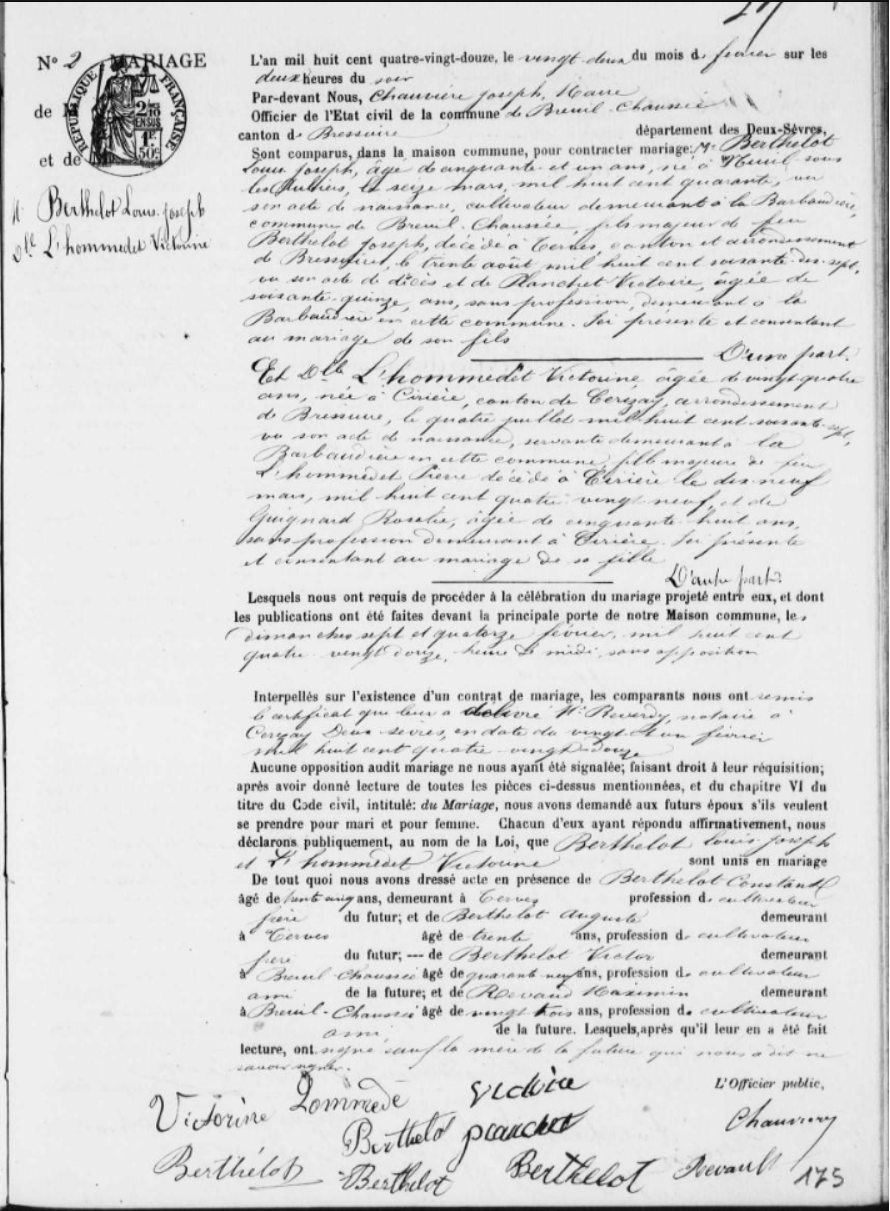 Nº 2 MARIAGE
de M
et de M
RÉPUBLIQUE FRANÇAISE
2/10 EN SUS
1F. 50C.
M. Berthelot Louis Joseph
Dlle L'hommedet Victorine
L'an mil huit cent quatre-vingt-douze, le vingt-deux du mois de fevrier sur les
deux heures du soir
Par-devant Nous, Chauvière Joseph, Maire
Officier de l'Etat civil de la commune de Breuil-Chaussée
canton de Bressuire département des Deux-Sèvres,
Sont comparus, dans la maison commune, pour contracter mariage: Mr Berthelot
Louis Joseph, âgé de cinquante et un ans, né à Nueil sous
les Aubiers, le seize mars, mil huit cent quarante, vu
son acte de naissance, cultivateur demeurant à la Barbaudière,
commune de Breuil-Chaussée, fils majeur de feu
Berthelot Joseph, décédé à Terves, canton et arrondissement
de Bressuire, le trente août mil huit cent soixante-dix-sept,
vu son acte de décès et de Planchet Victoire, âgée de
soixante-quinze, ans, sans profession, demeurant à la
Barbaudière en cette commune. Ici présente et consentant
au mariage de son fils
D'une part.
Et Dlle L'hommedet Victorine âgée de vingt quatre
ans, née à Cirière, canton de Cerizay, arrondissement
de Bressuire, le quatre juillet mil huit cent soixante-sept,
vu son acte de naissance, servante demeurant à la
Barbaudière en cette commune, fille majeure de feu
L'hommedet Pierre décédé à Cirière le dix-neuf
mars, mil huit cent quatre-vingt-neuf, et de
Guignard Rosalie, âgée de cinquante-huit ans,
sans profession demeurant à Cirière. Ici présente
et consentant au mariage de sa fille
D'autre part.
Lesquels nous ont requis de procéder à la célébration du mariage projeté entre eux, et dont
les publications ont été faites devant la principale porte de notre Maison commune, les
dimanches sept et quatorze février, mil huit cent
quatre-vingt-douze, heure de midi, sans opposition
Interpellés sur l'existence d'un contrat de mariage, les comparants nous ont remis
le certificat que leur a délivré Me Reverdy, notaire à
Cerizay Deux-sèvres, en date du vingt et un février
mil huit cent quatre-vingt-douze
Aucune opposition audit mariage ne nous ayant été signalée; faisant droit à leur réquisition;
après avoir donné lecture de toutes les pièces ci-dessus mentionnées, et du chapitre VI du
titre du Code civil, intitulé: du Mariage, nous avons demandé aux futurs époux s'ils veulent
se prendre pour mari et pour femme. Chacun d'eux ayant répondu affirmativement, nous
déclarons publiquement, au nom de la Loi, que Berthelot Louis Joseph
et L'hommedet Victorine sont unis en mariage
De tout quoi nous avons dressé acte en présence de Berthelot Constant
âgé de trente cinq ans, demeurant à Terves profession de cultivateur
frère du futur; et de Berthelot Auguste demeurant
à Terves âgé de trente ans, profession de cultivateur
frère du futur; — de Berthelot Victor demeurant
à Breuil-Chaussée âgé de quarante-neuf ans, profession de cultivateur
ami de la future; et de Revaud Maximin demeurant
à Breuil-Chaussée âgé de vingt trois ans, profession de cultivateur
ami, de la future. Lesquels, après qu'il leur en a été fait
lecture, ont signé sauf la mère de la future qui nous a dit ne
savoir signer.
L'Officier public,
Victorine Lommedé Victoire
Berthelot planchet Chauviery
Berthélot Berthelot Berthelot Revault 175